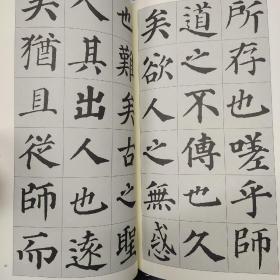 所存也嗟乎師
道之不傳也久
矣欲人之無惑
也難矣古之聖
人其出人也遠
矣猶且從師而